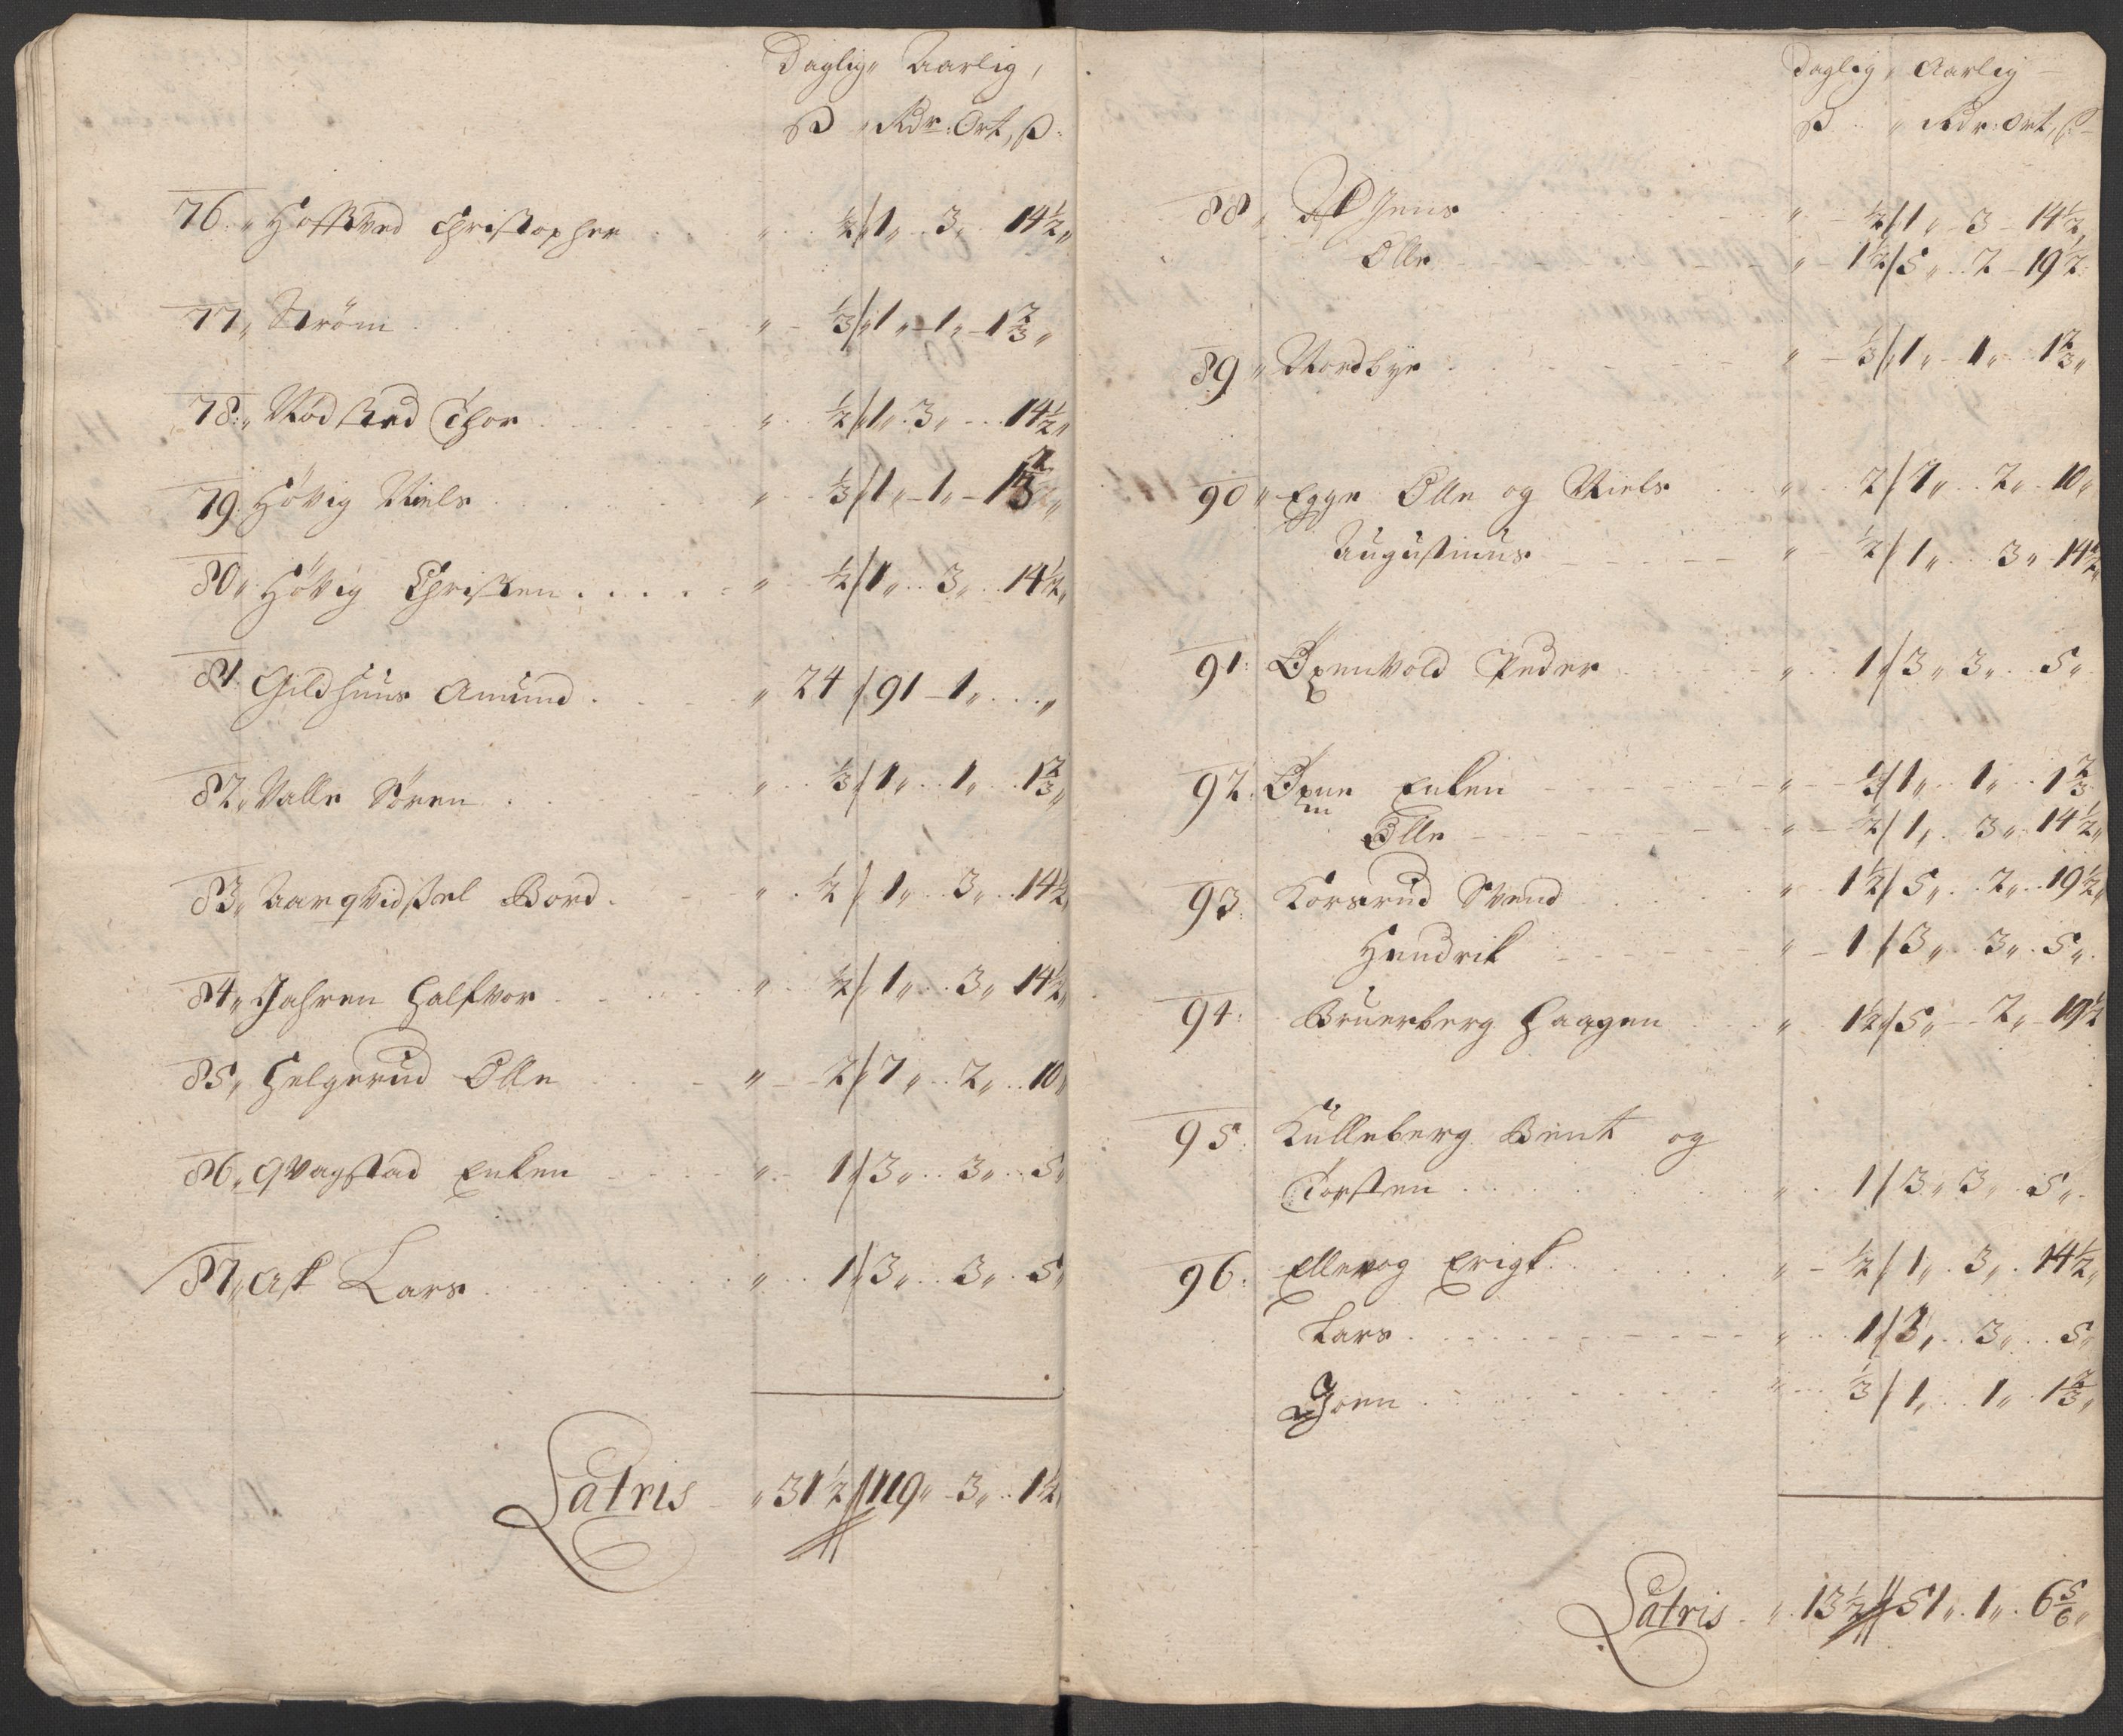 Daglig, Aarlig,
ß, Rdr: Ort, ß:
76: Hoffstved Christopher " ½ / 1 " 3 " 14½ "
77 " Strøm " ⅓ / 1 " 1 " 1⅔ "
78 " Nødsted Thor " ½ / 1 " 3 " 14½ "
79. Høvig Niels " ⅓ / 1 " 1 " 1⅔ "
80 " Høvig Christen " ½ / 1 " 3 " 14½ "
81. Gildhuus Amund " 24 / 91 - 1 " "
82 " Valle Søren " ⅓ / 1 " 1 " 1⅔ "
83 " Aarqvidstel Bord " ½ / 1 " 3 " 14½
84 " Jahren Halfvor " ½ / 1 " 3 " 14½ "
85 " Helgerud Olle " 2 / 7 " 2 " 10 "
86 " Qvagstad Enken " 1 / 3 " 3 " 5 "
87 " Ask Lars " 1 / 3 " 3 " 5 "
Latris " 31½ // 119 " 3 " 1½
Daglig, Aarlig
ß " Rdr: Ort, ß
88 " Ask Jens " ½ / 1 " 3 14½ "
Olle " 1½ / 5 " 2 19½ "
89 " Nordbye " ⅓ / 1 " 1 " 1⅔ "
90 " Egge Olle og Niels " 2 / 7 " 2 " 10 "
Augustinus " ½ / 1 " 3 " 14½ "
91: Øxenvold Peder " 1 / 3 " 3 " 5 "
92: Øxne Enken " ⅓ / 1 " 1 " 1⅔
Olle " ½ / 1 " 3 " 14½ "
93: Korsrud Svend " 1½ / 5 " 2 " 19½ "
Hendrik " 1 / 3 " 3 " 5 "
94: Bruerberg Haagen " 1½ / 5 " 2 " 19½
95: Kulleberg Bent og
Torsten " 1 / 3 " 3 " 5 "
96: Ellevog Erigk " ½ / 1 " 3 " 14½ "
Lars " 1 / 3 " 3 " 5 "
Joen " ⅓ / 1 " 1 " 1⅔ "
Latris " 13½ // 51 " 1 " 6⅚ "